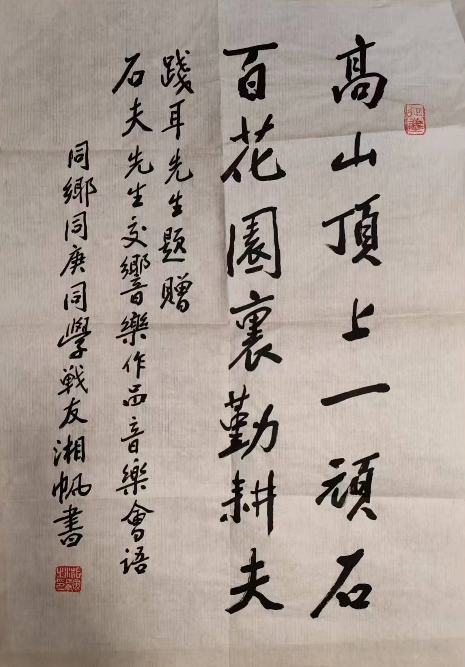 高山頂上一頑石
百花園裏勤耕夫
踐耳先生題贈
石夫先生交響音樂作品音樂會语
同鄉同庚同學戰友湘帆書